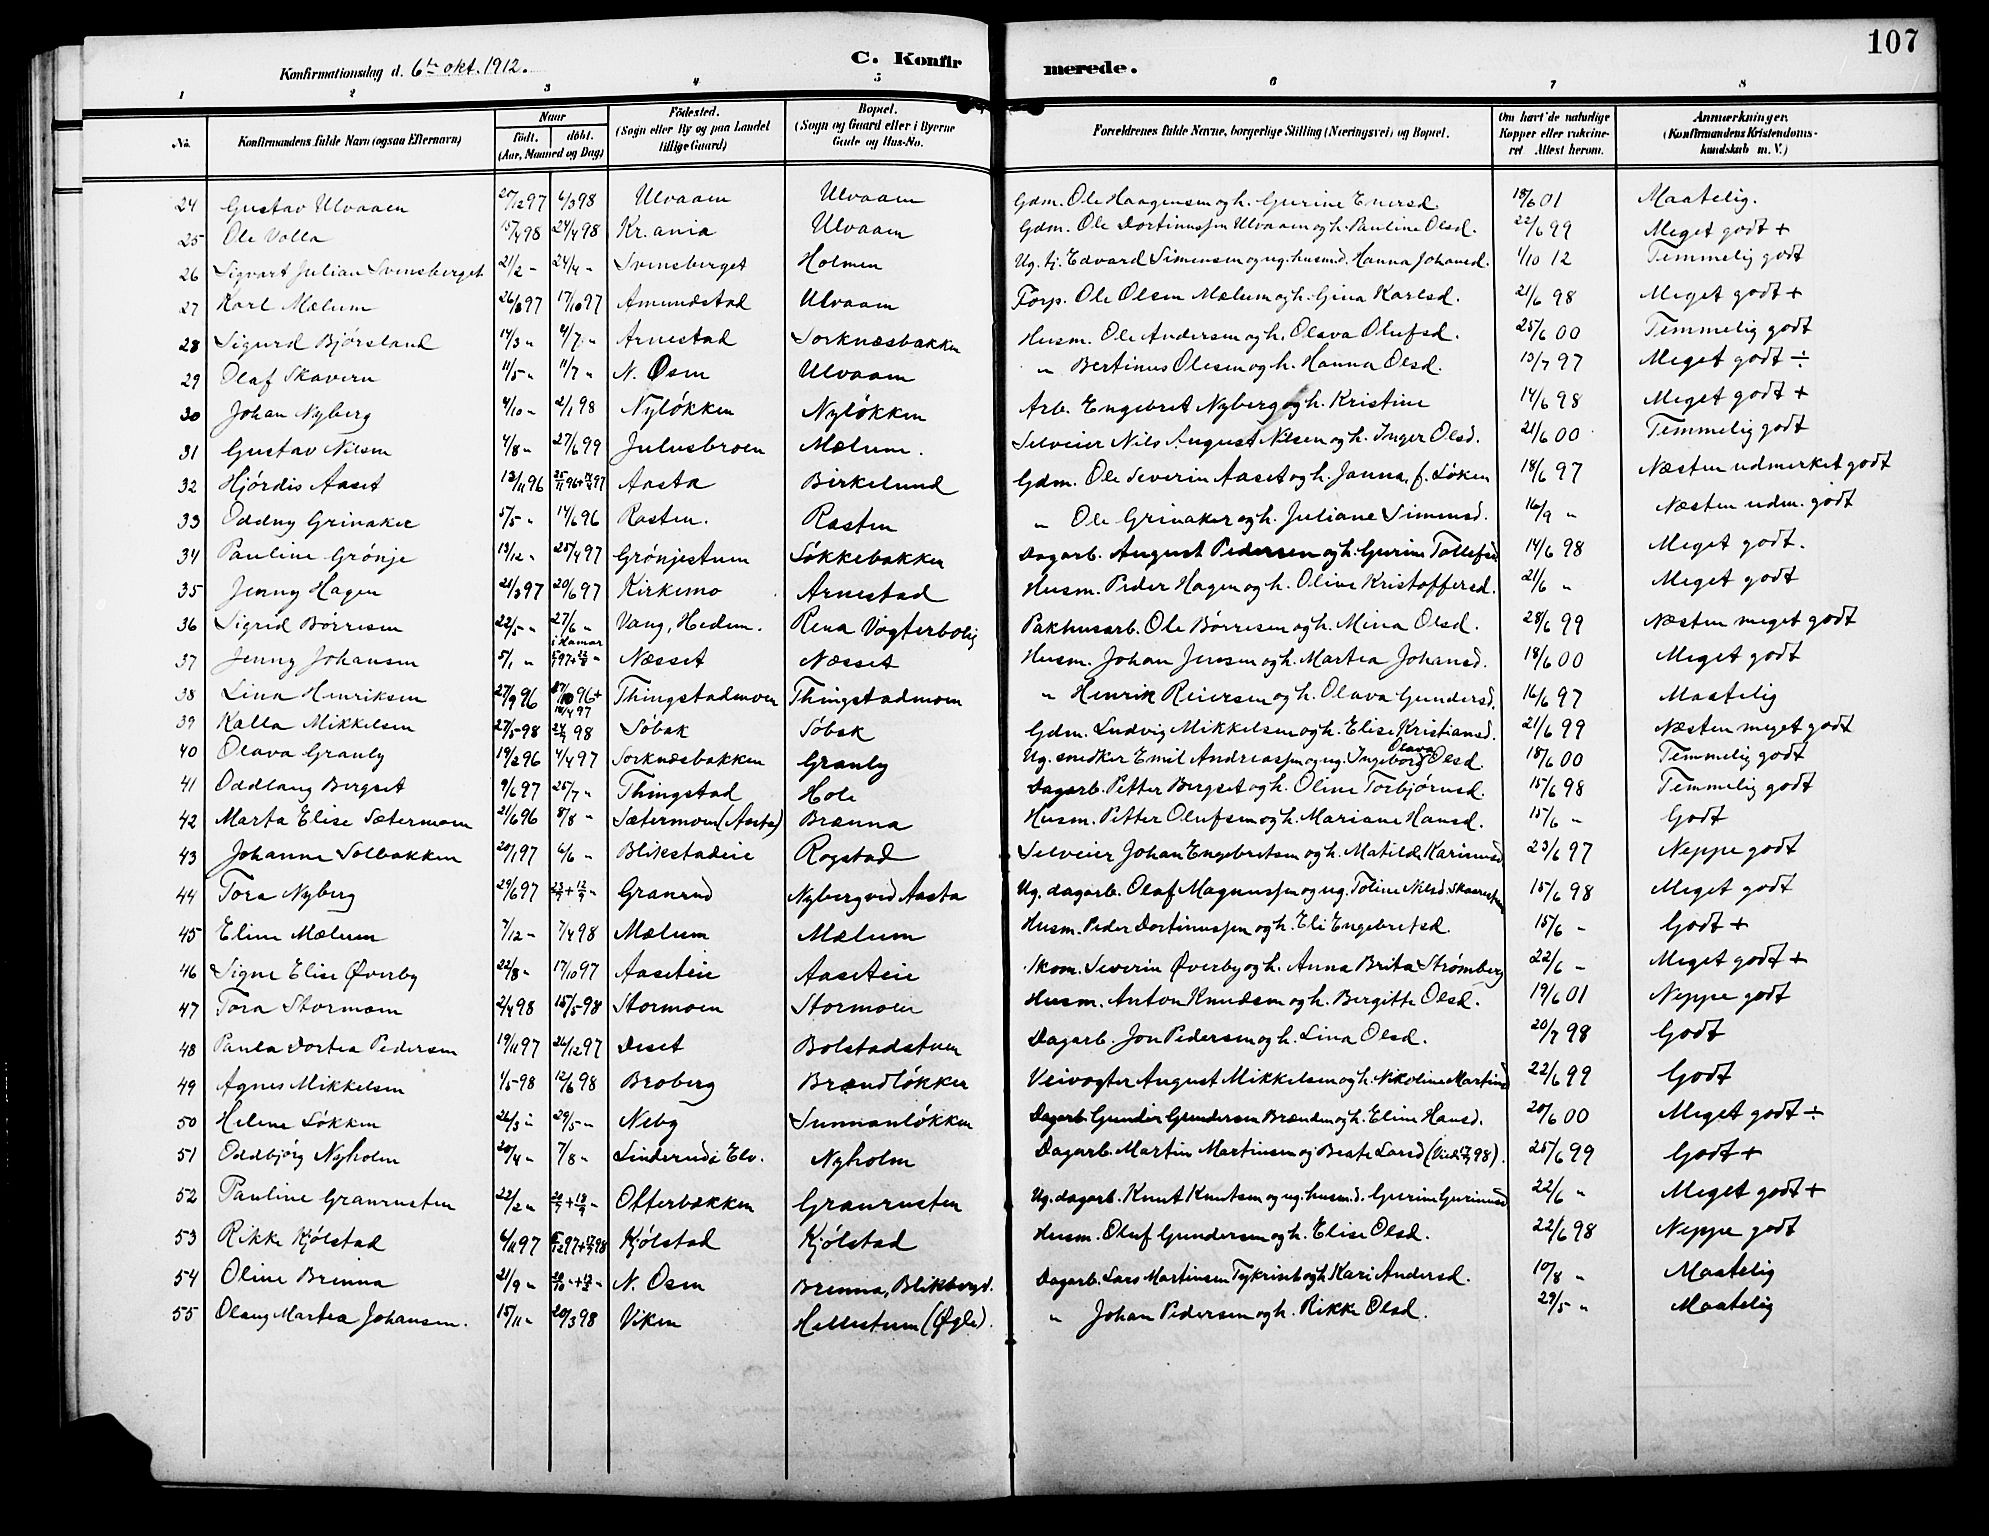 107
Konfirmationsdag d. 6te okt. 1912.
C. Konfirmerede.
1 2 3 4 5 6 7 8
No. Konfirmandens fulde Navn (ogsaa Efternavn) Naar født. døbt. (Aar, Maaned og Dag) Fødested. (Sogn eller By og paa Landet tillige Gaard) Bopæl. (Sogn og Gaard eller i Byerne Gade og Hus-No. Forældrenes fulde Navne, borgerlige Stilling (Næringsvei) og Bopæl. Om havt de naturlige Kopper eller vakcineret Attest herom. Anmærkninger. (Konfirmandens Kristendomskundskab m. V.)
24 Gustav Ulvaaen 27/12 97 6/3 98 Ulvaaen Ulvaaen Gdm. Ole Haagensen og h. Gurine Enersd. 18/6 01 Maatelig.
25 Ole Volla 15/4 98 24/4 98 Kr.ania Ulvaaen Gdm. Ole Dortinussen Ulvaaen og h. Pauline Olsd. 22/6 99 Meget godt +
26 Sigvart Julian Svensberget 21/2 - 24/4 - Svensberget Holmen Ug. tj. Edvard Simensen og ug. husm.d. Hanna Johansd. 1/10 12 Temmelig godt
27 Karl Mælum 26/8 97 17/10 97 Amundstad Ulvaaen Forp. Ole Olsen Mælum og h. Gina Karlsd. 21/6 98 Meget godt +
28 Sigurd Bjørsland 14/3 " 4/7 " Arnestad Sorknæsbakken Husm. Ole Andersen og h. Olava Olufsd. 25/6 00 Temmelig godt
29 Olaf Skavern 11/5 " 11/7 " N. Osen Ulvaaen " Bertinus Olesen og h. Hanna Olsd. 13/7 97 Meget godt ÷
30 Johan Nyberg 4/10 - 2/1 98 Nyløkken Nyløkken Arb. Engebret Nyberg og h. Kristine 14/6 98 Meget godt +
31 Gustav Nilsen 4/8 - 27/6 99 Julusbroen Mælum. Selveier Nils August Nilsen og h. Inger Olsd. 21/6 00 Temmelig godt
32 Hjørdis Aaset 12/11 96 25/11 96 + 97 Aasta Birkelund Gdm. Ole Severin Aaset og h. Janna, f. Løken 18/6 97 Næsten udmerket godt
33 Oddny Grinaker 5/5 " 14/6 96 Rasten. Rasten " Ole Grinaker og h. Juliane Simensd. 16/9 " Næsten udm. godt
34 Pauline Grønje 13/12 - 25/4 97 Grønjestuen Søkkebakken Dagarb. August Pedersen og h. Gurine Tollefsd 14/6 98 Meget godt.
35 Jenny Hagen 21/3 97 20/6 97 Kirkemo Arnestad Husm. Peder Hagen og h. Olive Kristoffersd. 21/6 " Meget godt
36 Sigrid Børresen 22/5 - 27/6 " i Hamar Vang, Hedem. Rena Vogterbolig Pakhusarb. Ole Børresen og h. Mina Olsd. 28/6 99 Næsten meget godt
37 Jenny Johansen 5/1 " 97 + " Næsset Næsset Husm. Johan Jensen og h. Martea Johansd. 18/6 00 Meget godt
38 Lina Henriksen 27/9 96 27/10 96 + 18/4 97 Thingstadmoen Thingstadmoen " Henrik Reiersen og h. Olava Gundersd. 16/6 97 Maatelig
39 Kalla Mikkelsen 27/5 98 24/7 98 Søbak Søbak Gdm. Ludvig Mikkelsen og h. Elise Kristiansd. 21/6 99 Næsten meget godt
40 Olava Granly 19/2 96 4/4 97 Sorknæsbakken Granly Ug. snedker Emil Andreassen og ug. Ingeborg Olava Olsd. 18/6 00 Temmelig godt
41 Oddlaug Bergset 9/6 97 25/7 " Thingstad Hole Dagarb. Petter Bergset og h. Oline Torbjørnsd. 15/6 98 Temmelig godt
42 Marta Elise Sætermoen 21/6 96 8/8 - Sætermoen (Aasta) Brænna Husm. Petter Olufsen og h. Mariane Hansd. 15/6 - Godt
43 Johanne Solbakken 20/1 97 6/6 - Blikstadeie Rogstad Selveier Johan Engebretsen og h. Matilde Karinusd 23/6 97 Neppe godt
44 Tora Nyberg 29/6 97 + " Granrud Nyberg ved Aasta Ug. dagarb. Olaf Magnussen og ug. Toline Nilsd. 15/6 98 Meget godt
45 Eline Mælum 7/12 - 7/4 98 Mælum Mælum Husm. Peder Dortinussen og h. Eli Engebretsd. 15/6 - Godt +
46 Signe Elise Øverby 22/8 - 17/10 97 Aaseteie Aaseteie Skom. Severin Øverby og h. Anna Brita Strømberg 22/6 - Meget godt +
47 Tora Stormoen 2/4 98 15/5 98 Stormoen Stormoen Husm. Anton Knudsen og h. Bergitte Olsd. 19/6 01 Neppe godt
48 Paula Dortea Pedersen 19/11 97 26/12 97 Deset Bolstadstuen Dagarb. Jon Pedersen og h. Lina Olsd. 20/7 98 Godt
49 Agnes Mikkelsen 1/5 98 12/6 98 Broberg Brændløkken Veivogter August Mikkelsen og h. Nikoline Martinsd 22/6 99 Godt
50 Helene Løkken 26/3 " 29/5 " Neby Sunnanløkken Dagarb. Gunder Gundersen Brænden og h. Eline Hansd. 20/6 00 Meget godt ÷
51 Oddbjørg Nyholm 20/4 - 7/8 - Linderud i Elv. Nyholm Dagarb. Martin Martinsen og Beate Larsd 25/6 99 Godt +
52 Pauline Granrusten 22/2 " + " Otterbækken Granrusten Ug. dagarb. Knut Knutsen og ug. husm.d. Gurine Gurinusd 22/6 " Meget godt +
53 Rikke Kjølstad 6/11 97 97 + 98 Kjølstad Kjølstad Husm. Oluf Gundersen og h. Elise Olsd. 22/6 98 Neppe godt
54 Oline Brenna 21/9 " - + - N. Osen Brenna, Blikbergd. Dagarb. Lars Martinsen og h. Kari Andersd. 10/8 " Maatelig
55 Olaug Martea Johansen. 15/11 - 20/3 98 Viken Hellestuen (Øgle). " Johan Pedersen og h. Rikke Olsd. 29/5 " Maatelig